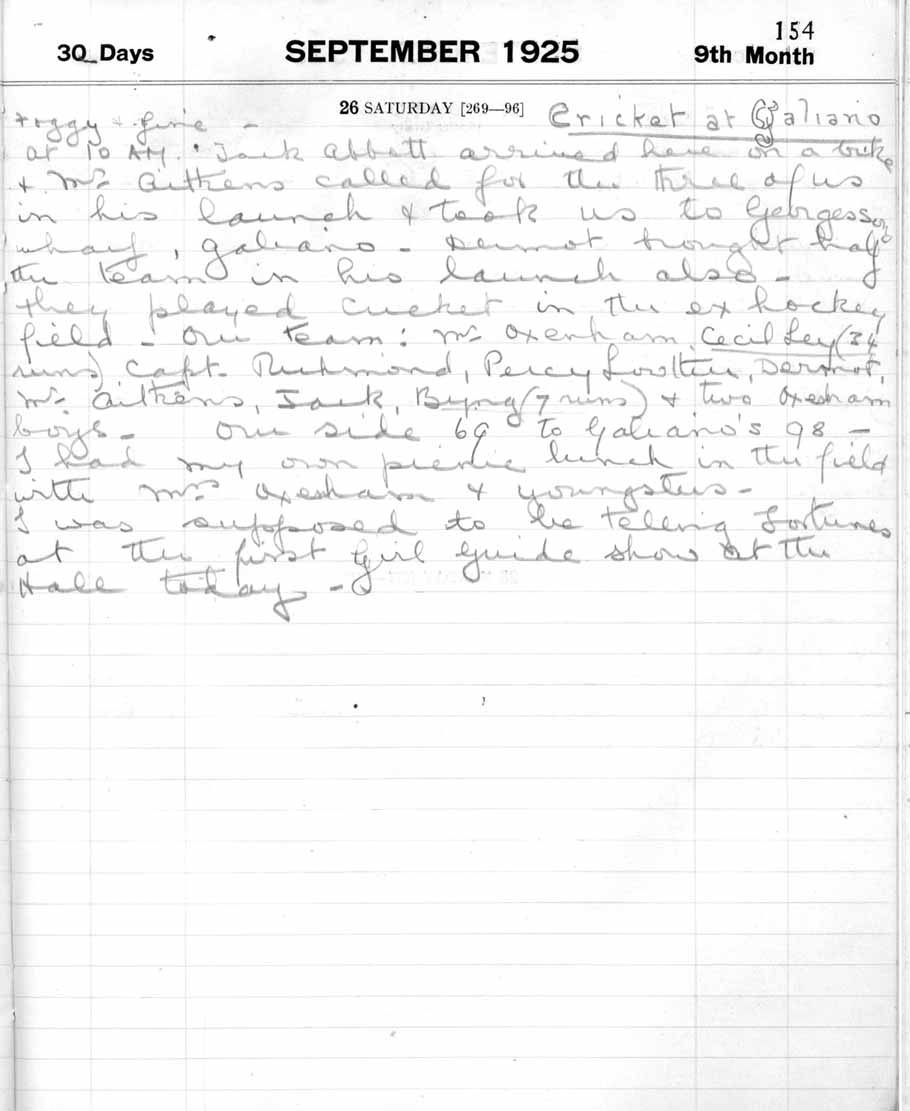 154
30 Days SEPTEMBER 1925 9th Month
26 SATURDAY [269—96]
Foggy & fine - Cricket at Galiano
at 10 AM. Jack Abbott arrived here on a bike
& Mr Aitkens called for the three of us
in his launch & took us to Georgeson
wharf, Galiano - Dermot brought half
the team in his launch also -
they played cricket in the ex hockey
field - Our team: Mr Oxenham, Cecil Ley (34
runs) Capt. Richmond, Percy Lowther, Dermot,
Mr Aitkens, Jack, Byng (7 runs) & two Oxenham
boys - Our side 69 to Galiano's 98 -
I had my own picnic lunch in the field
with Mrs Oxenham & youngsters -
I was supposed to be telling fortunes
at the first Girl Guide show at the
Hall today -